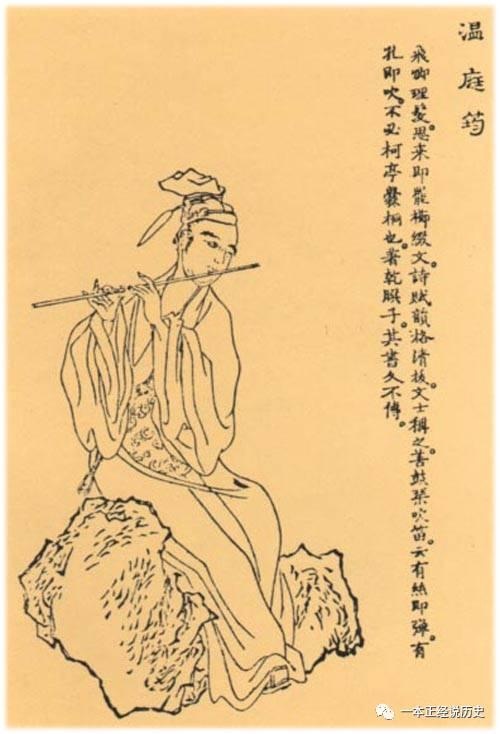 温庭筠
飛卿理髮。思来即罷櫛綴文。詩賦韻格清拔。文士稱之。善鼓琴吹笛。云有絲即彈。有
孔即吹。不必柯亭爨桐也。著乾𦠆子。其書久不傳。
一本正经说历史